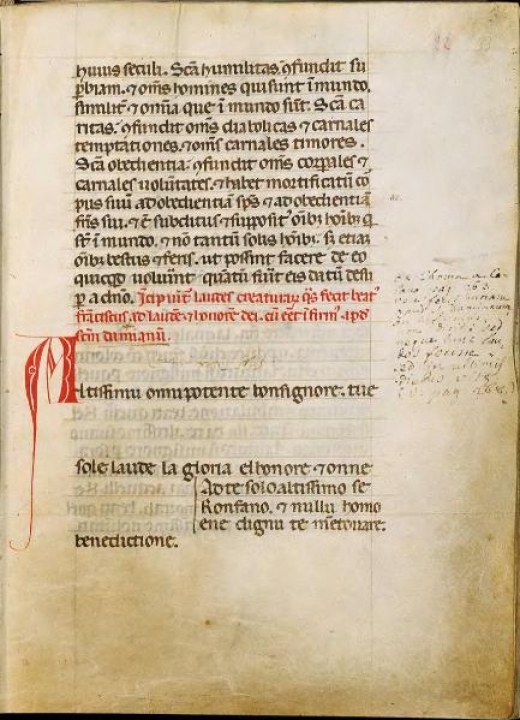 huius seculi. Sca humilitas ꝯfundit su
ꝑbiam. ⁊ om̄s homines qui sunt ī mundo.
similit̉ ⁊ omīa que ī mundo sūt. Sca ca
ritas. ꝯfundit om̄s diabolicas ⁊ carnales
temptationes. ⁊ om̄s carnales timores.
Sca obedientia. ꝯfundit om̄s corꝑales ⁊
carnales uoluntates. ⁊ habet mortificatū co
pus suū ad obedientiā sp̄s ⁊ ad obedientiā
fr̄is sui. ⁊ ē subditus ⁊ supposit̉ oībꝫ hoībꝫ q̄
st̄ ī mundo. ⁊ nō tantū solis hoībꝫ. sꝫ etiaꝫ
oībꝫ bestiis ⁊ feris. ut possint facere de eo
quicqd uoluīnt quātū fūit eis datū desu
ꝑ a dn̄o. Īcipiūt laudes creaturaꝝ q̄s fecit beat̉
frāciscus ad laudē ⁊ honorē dei. cū eēt īfirm̉ apd
scm̄ damianū.
Altissimu omnipotente bonsignore. tue
sole laude la gloria elhonore ⁊ onne
Ad te solo altissimo se
Konfano. ⁊ nullu homo
ene dignu te mētouare.
benedictione.